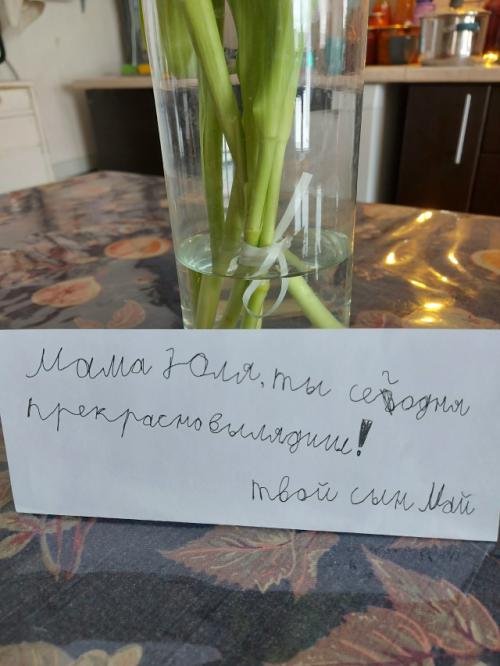 Мама Юля, ты сегодня
прекрасновылядиш!
твой сын Май